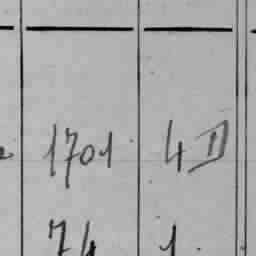 1701 4 II
74 1.